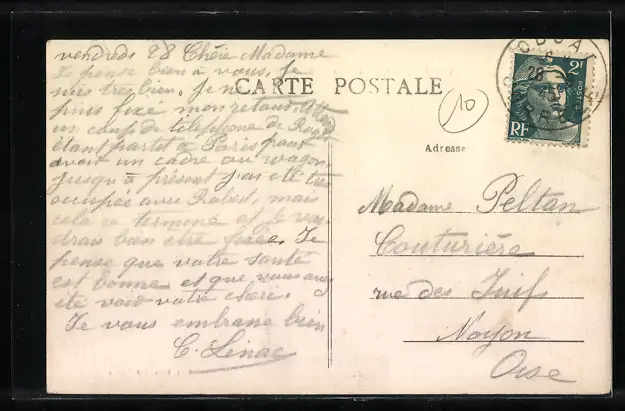 vendredi 28 Chère Madame
Je pense bien à vous. Je
suis très bien. Je ne
puis fixé mon retour
un coup de téléphone de
étant partit à Paris pour
avoir un cadre ou wagon.
jusqu'à présent j'ai été très
occupée avec Robert, mais
cela ce termine et je vou-
drais bien être fixée. Je
pense que votre santé
est bonne et que vous avez
été voir votre chéri.
Je vous embrasse bien
C. Lenac
CARTE POSTALE
10
DOUAI
28
2F
RF
Adresse
Madame Peltan
Couturière
rue des Juifs
Noyon
Oise